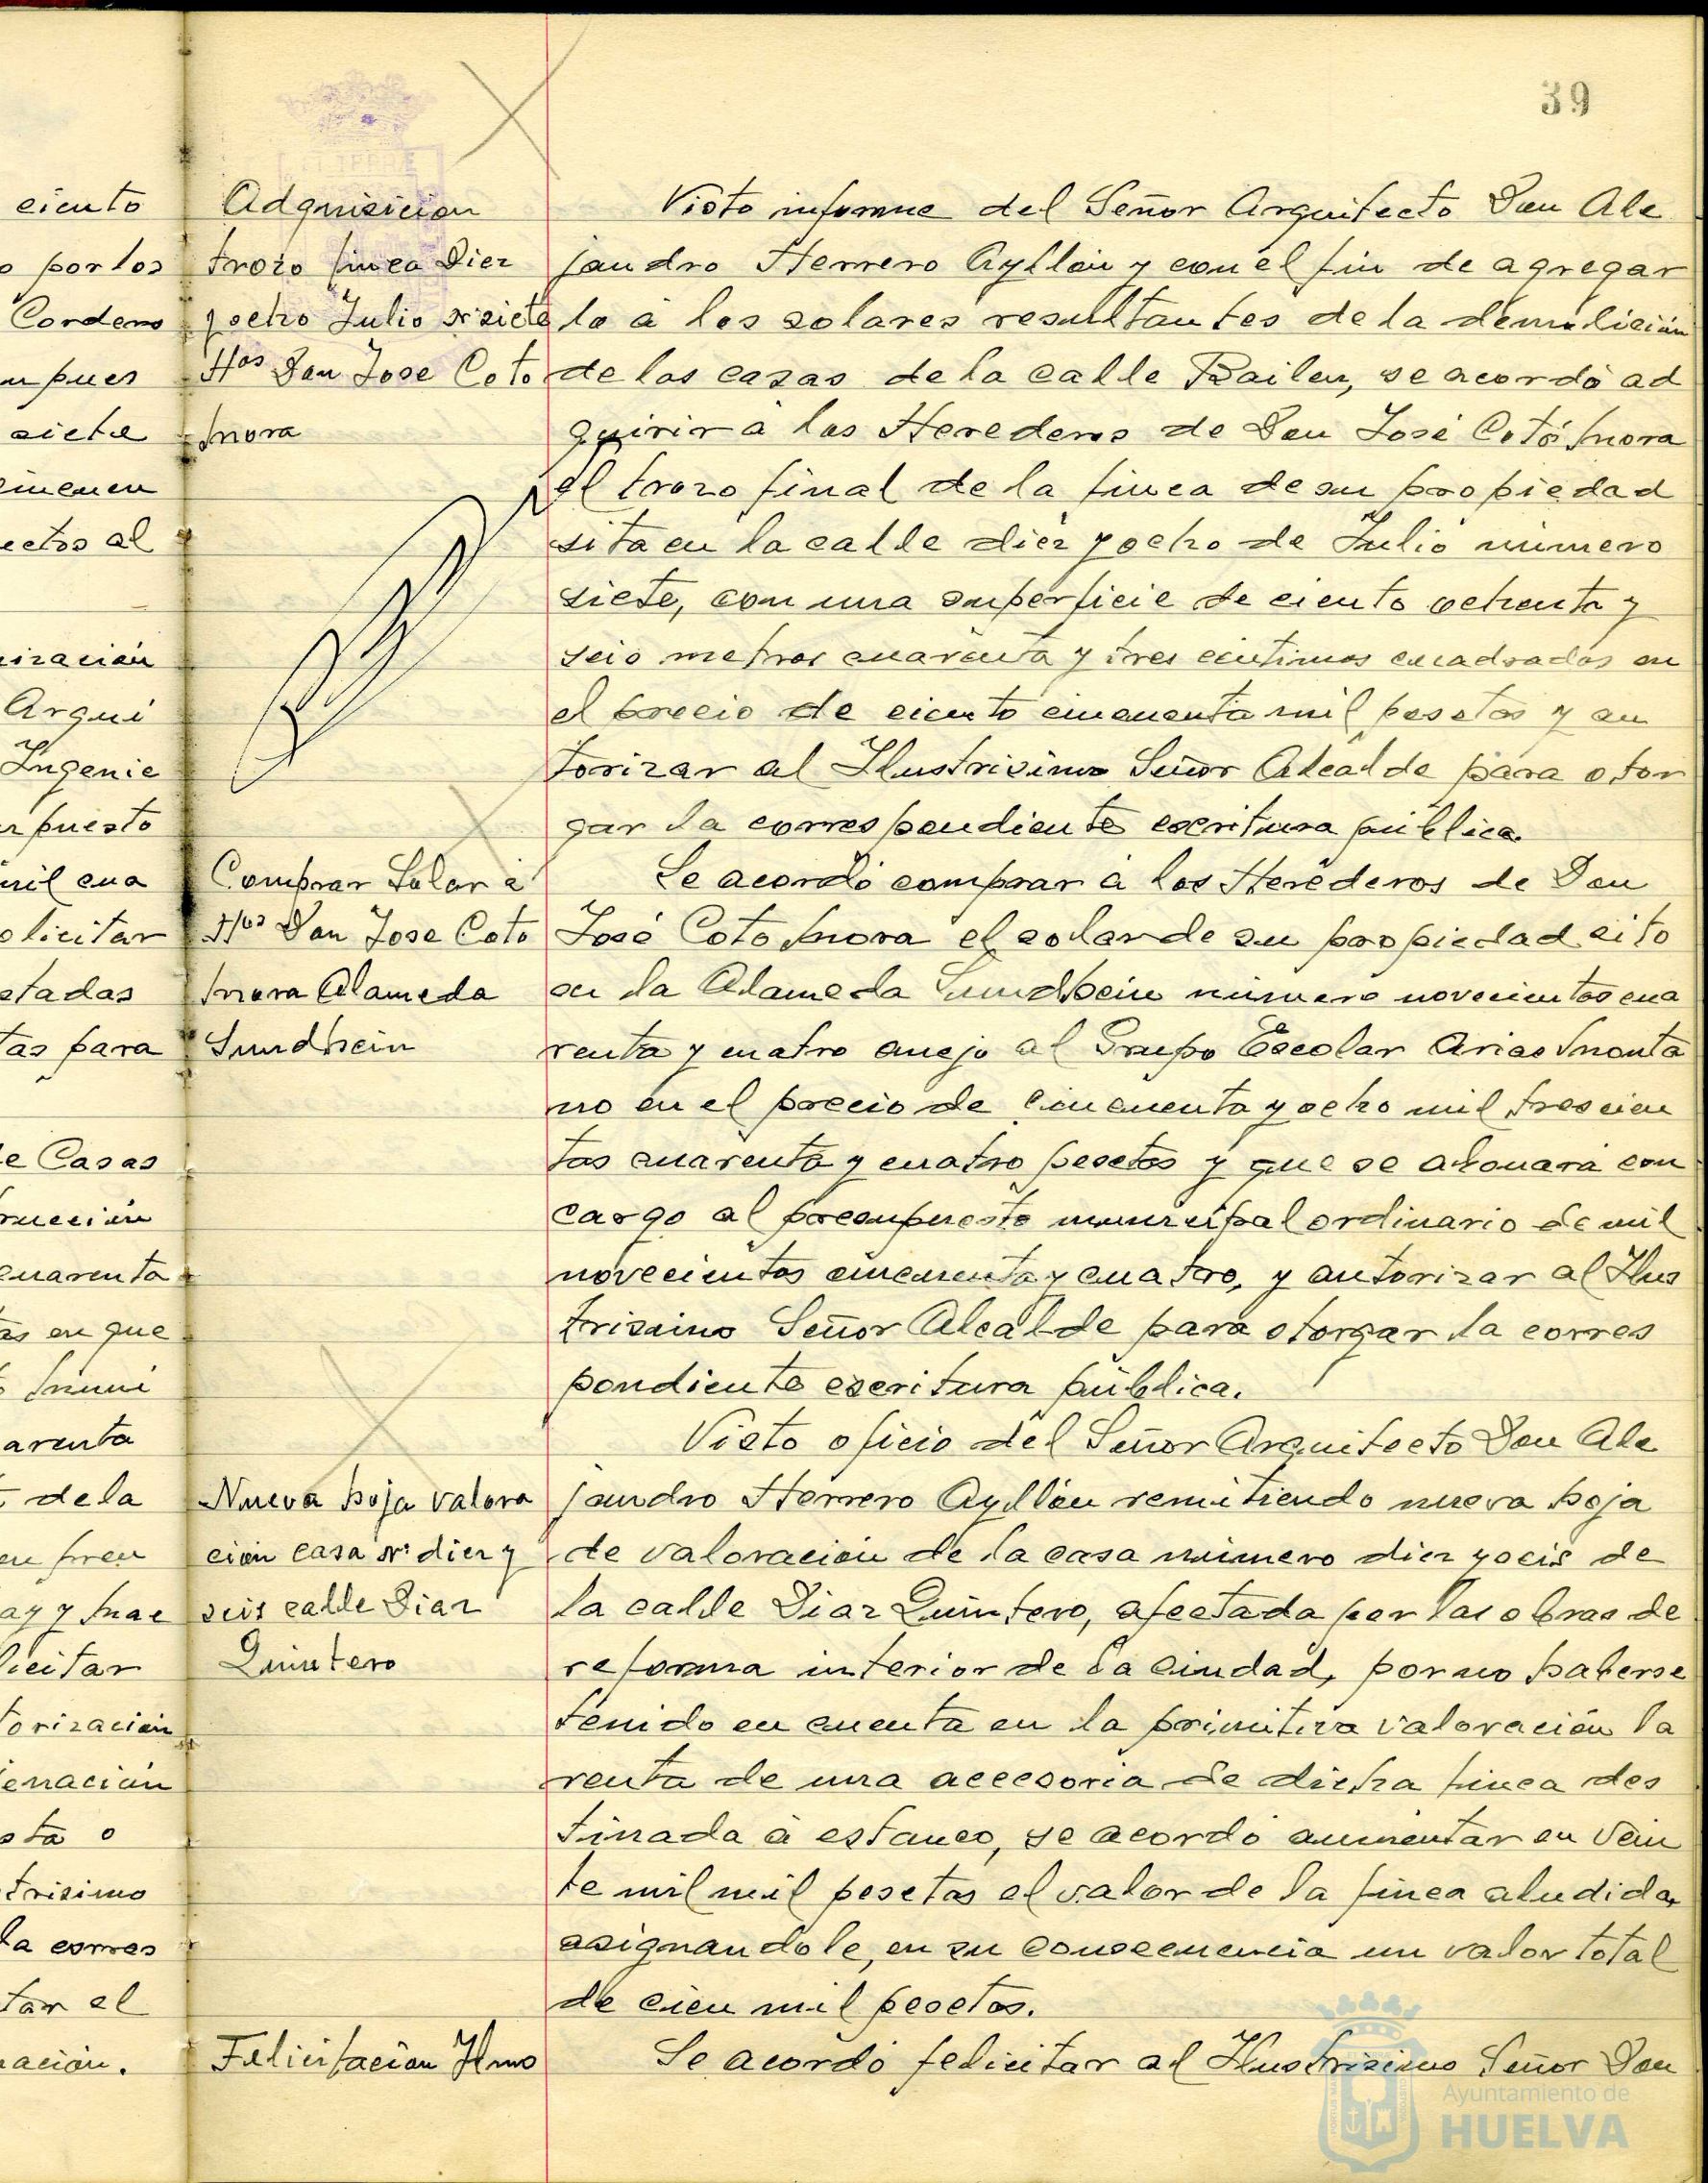 39
ciento
o por los
Cordero
n pues
siete
cincuen
ectos al
nización
Arqui
Ingenie
r puesto
mil cua
olicitar
etadas
tas para
e Casas
rucción
cuarenta
as en que
o Muni
arenta
dela
en pren
ay y Mae
licitar
torización
enación
sta o
trisimo
la corres
tar el
ación.
Adquisicion
trozo finca Diez
y ocho Julio nº siete
Hos Don Jose Coto
Mora
Comprar Solar á
Hos Don Jose Coto
Mora Alameda
Sundhein
Nueva hoja valora
ción casa nº diez y
seis calle Diaz
Quintero
Felicitacion Ilmo
Visto informe del Señor Arquitecto Don Ale
jandro Herrero Ayllón y con el fin de agregar
lo á los solares resultantes de la demolición
de las casas de la calle Bailen, se acordó ad
quirir á los Herederos de Don José Cotó Mora
el trozo final de la finca de su propiedad
sita en la calle diez y ocho de Julio número
siete, con una superficie de ciento ochenta y
seis metros cuarenta y tres céntimos cuadrados en
el precio de ciento cincuenta mil pesetas y au
torizar al Ilustrisimo Señor Alcalde para otor
gar la correspondiente escritura pública.
Se acordó comprar á los Herederos de Don
José Coto Mora el solar de su propiedad sito
en la Alameda Sundhein número novecientos cua
renta y cuatro anejo al Grupo Escolar Arias Monta
no en el precio de cincuenta y ocho mil trescien
tas cuarenta y cuatro pesetas y que se abonará con
cargo al presupuesto municipal ordinario de mil
novecientos cincuenta y cuatro, y autorizar al Ilus
trisimo Señor Alcalde para otorgar la corres
pondiente escritura pública.
Visto oficio del Señor Arquitecto Don Ale
jandro Herrero Ayllón remitiendo nueva hoja
de valoración de la casa número diez y seis de
la calle Diaz Quintero, afectada por las obras de
reforma interior de la Ciudad, por no haberse
tenido en cuenta en la primitiva valoración la
renta de una accesoria de dicha finca des
tinada á estanco, se acordó aumentar en vein
te mil mil pesetas el valor de la finca aludida,
asignandole, en su consecuencia un valor total
de cien mil pesetas.
Se acordó felicitar al Ilustrisimo Señor Don
Ayuntamiento de
HUELVA